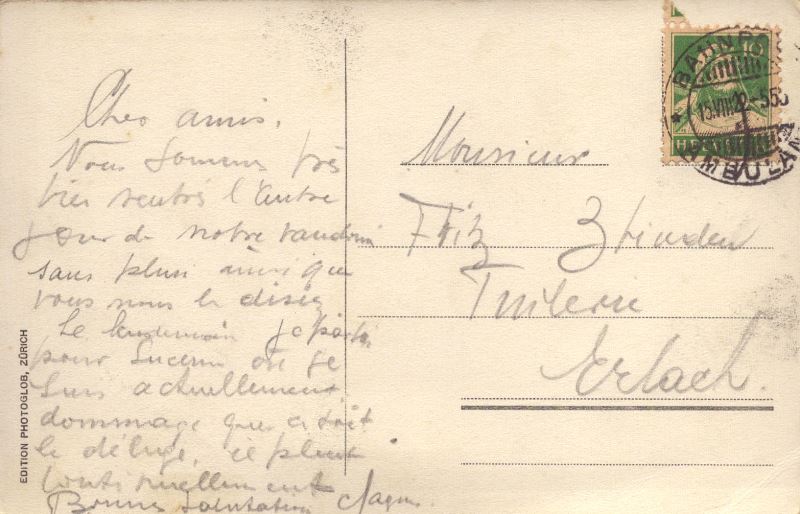 Chers amis.
Nous sommes très
bien rentrés l'autre
jour de notre
sans pluie ainsi que
vous nous le disiez
Le lendemain je partis
pour Lucerne où je
suis actuellement
dommage que ce soit
le déluge, il pleut
continuellement
Bonnes salutations
EDITION PHOTOGLOB, ZÜRICH
10
HELVETIA
BAHNPOST
15.VIII.22
AMBULANT
Monsieur
Fritz
Tuilerie
Erlach.